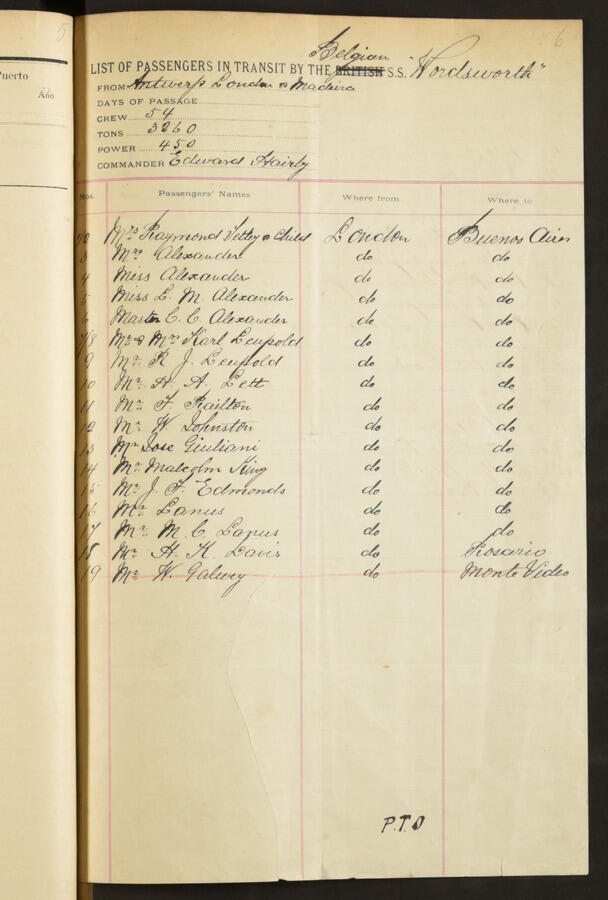 5
Puerto
Año
6
Belgian
LIST OF PASSENGERS IN TRANSIT BY THE BRITISH S.S. "Wordsworth"
FROM Antwerp London & Madeira
DAYS OF PASSAGE
CREW 54
TONS 3260
POWER 450
COMMANDER Edward Hairby
Nos. Passengers' Names Where from Where to
Mrs Raymond Tetley & Child London Buenos Aires
3 Mrs Alexander do do
4 Miss Alexander do do
5 Miss L. M. Alexander do do
6 Master C. C. Alexander do do
7/8 Mr & Mrs Karl Leupold do do
9 Mr R. J. Leupold do do
10 Mr H. A. Lett do do
11 Mr F. Railton do do
12 Mr W. Johnston do do
13 Mr Jose Giuliani do do
14 Mr Malcolm King do do
15 Mr J. F. Edmonds do do
16 Mr Lanus do do
17 Mr M. C. Lanus do do
18 Mr H. K. Davis do Rosario
19 Mr W. Galwey do Monte Video
P.T.O